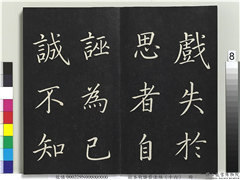 戲失於
思者自
誣為己
誠不知
8